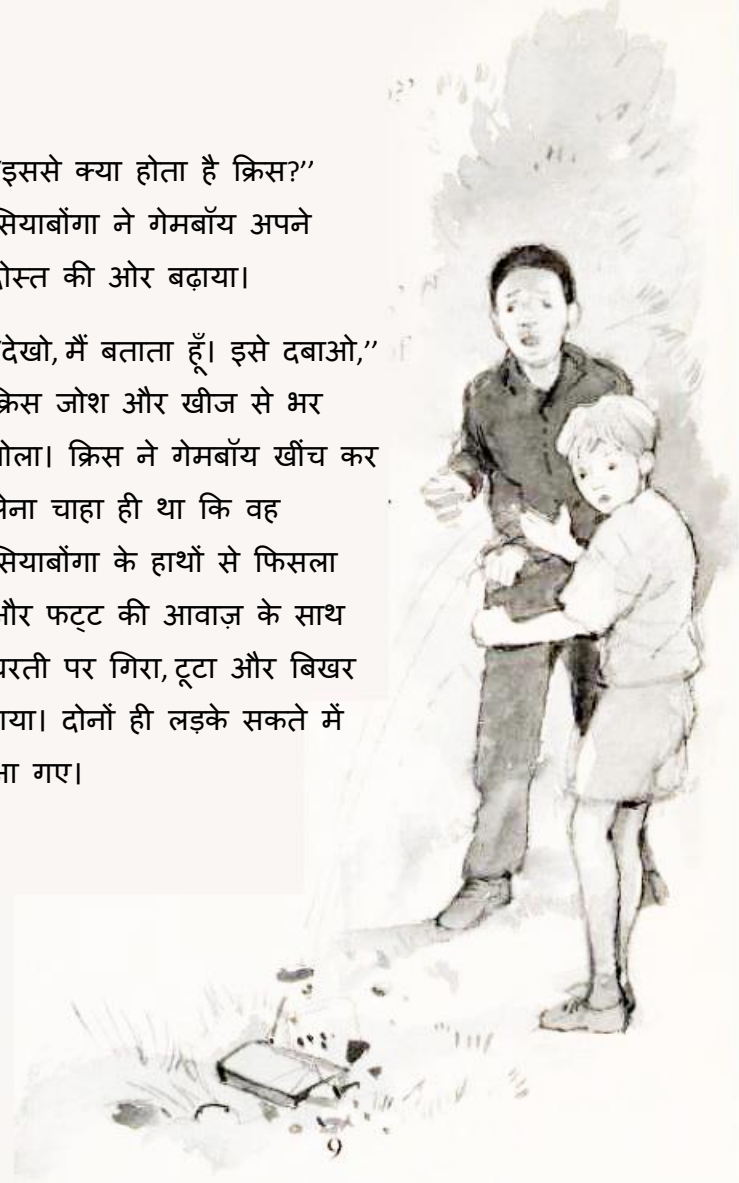 "इससे क्या होता है क्रिस?''
सियाबोंगा ने गेमबॉय अपने
दोस्त की ओर बढ़ाया।
"देखो, मैं बताता हूँ। इसे दबाओ,''
क्रिस जोश और खीज से भर
बोला। क्रिस ने गेमबॉय खींच कर
लेना चाहा ही था कि वह
सियाबोंगा के हाथों से फिसला
और फट्ट की आवाज़ के साथ
धरती पर गिरा, टूटा और बिखर
गया। दोनों ही लड़के सकते में
आ गए।
9